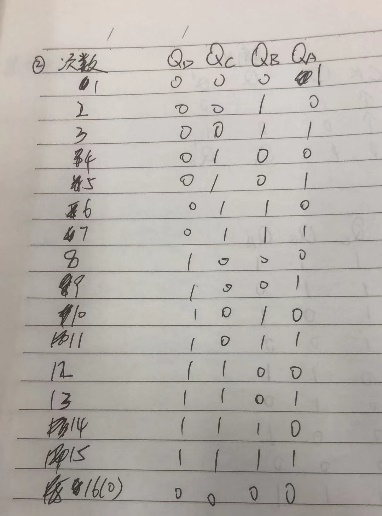 ② 次数 QD QC QB QA
1 0 0 0 1
2 0 0 1 0
3 0 0 1 1
4 0 1 0 0
5 0 1 0 1
6 0 1 1 0
7 0 1 1 1
8 1 0 0 0
9 1 0 0 1
10 1 0 1 0
11 1 0 1 1
12 1 1 0 0
13 1 1 0 1
14 1 1 1 0
15 1 1 1 1
16(0) 0 0 0 0